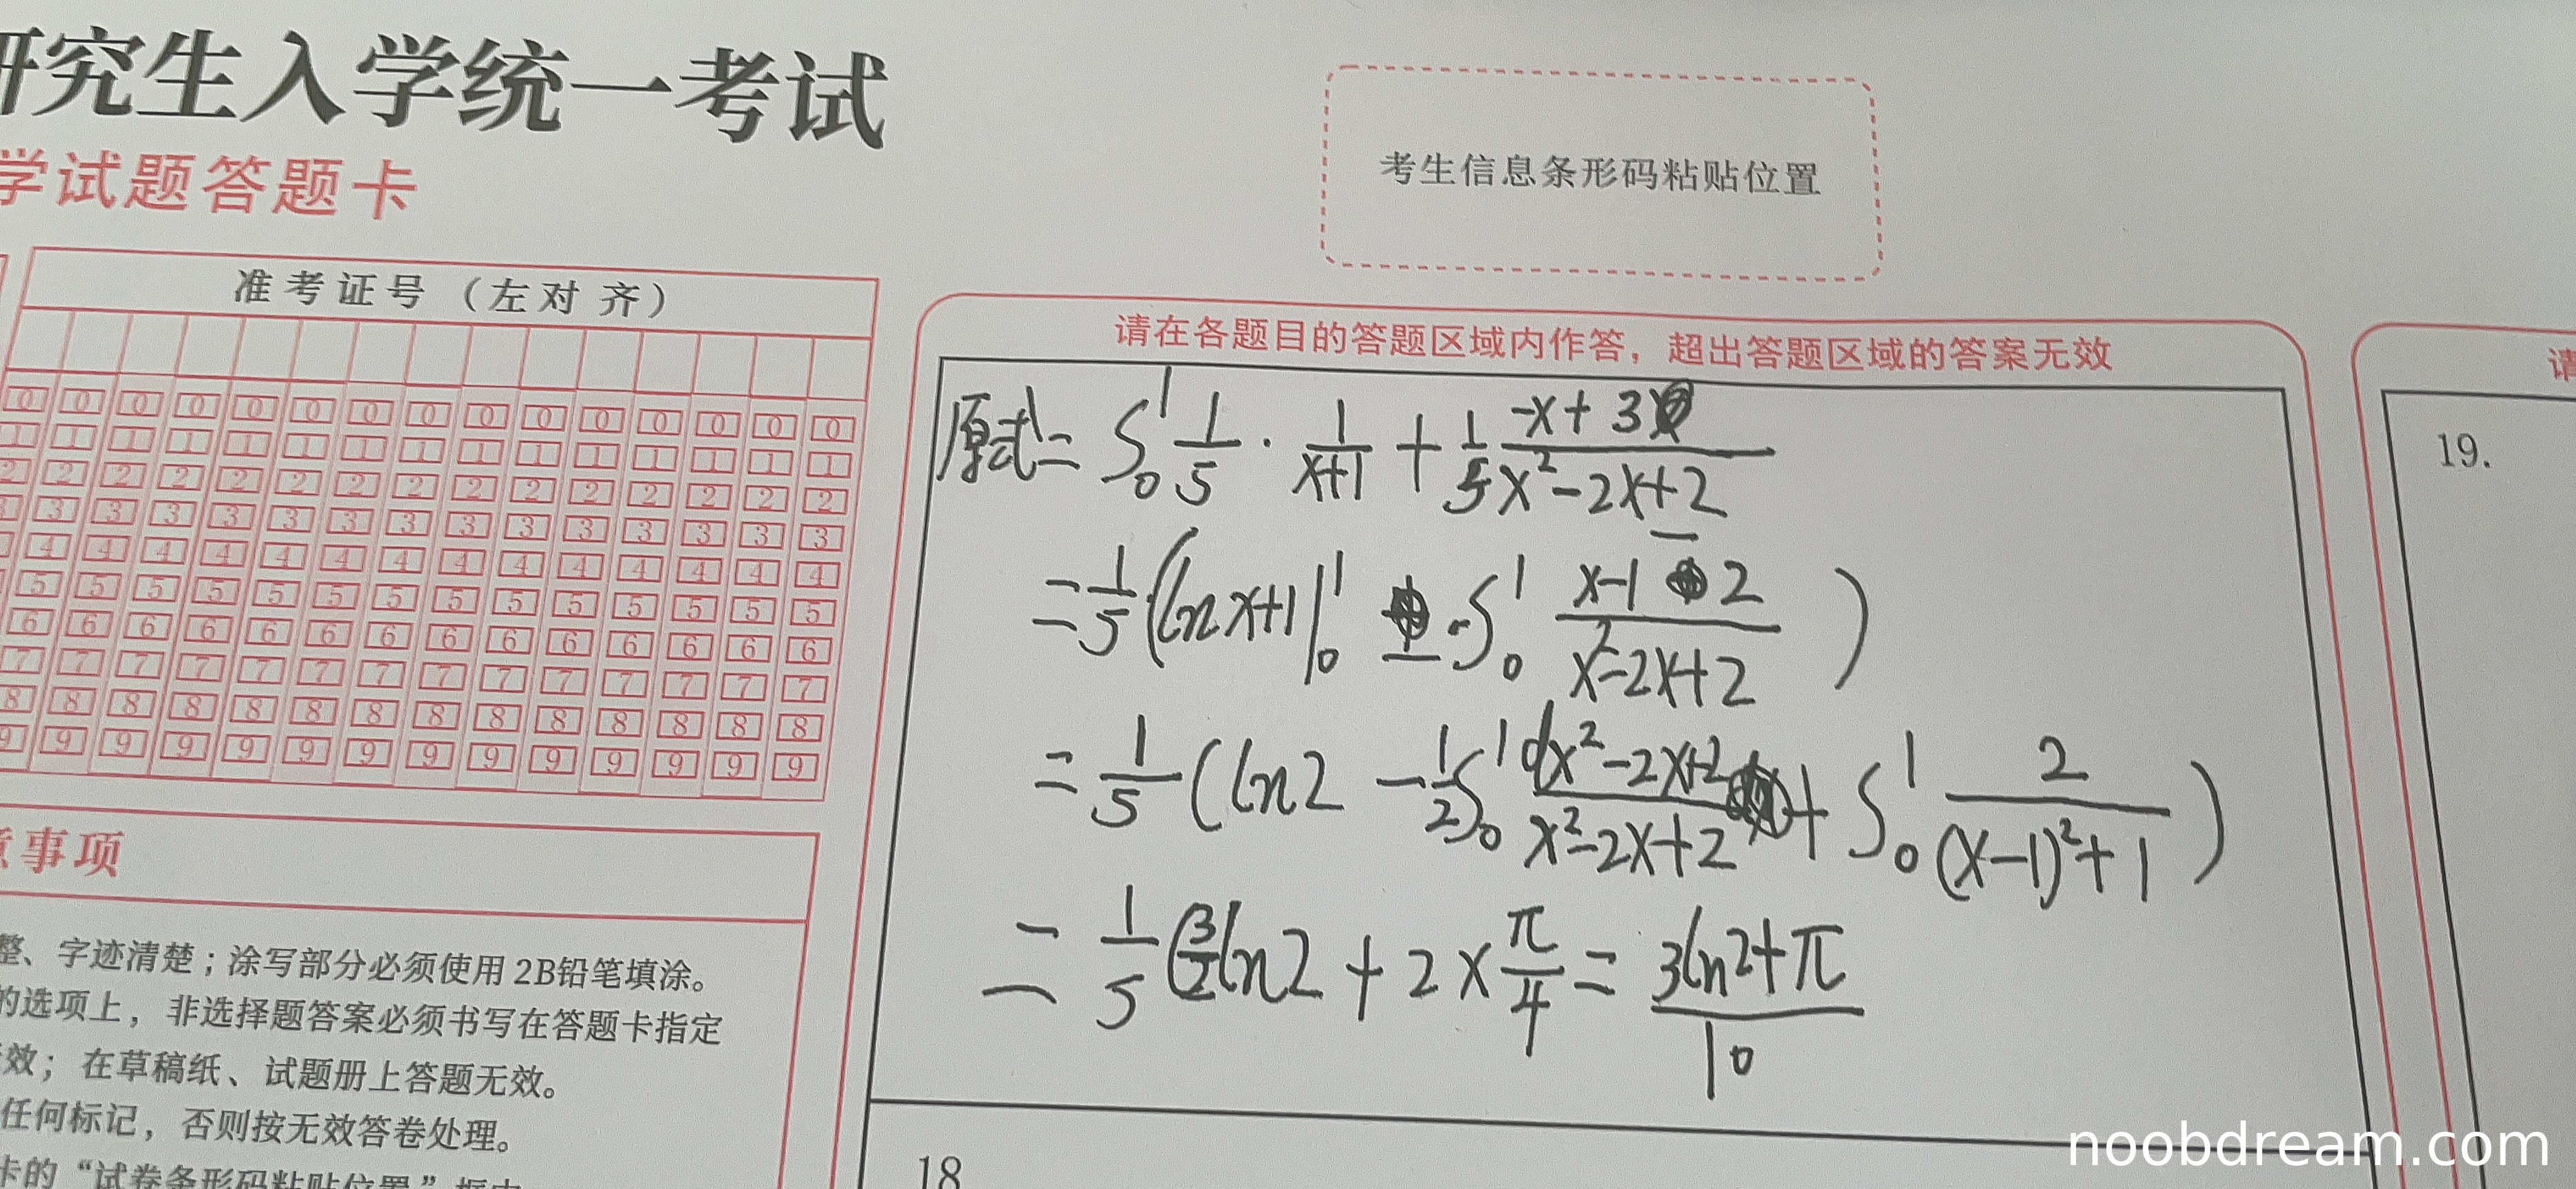 研究生入学统一考试
学试题答题卡
考生信息条形码粘贴位置
准考证号（左对齐）
0 0 0 0 0 0 0 0 0 0 0 0 0 0 0
1 1 1 1 1 1 1 1 1 1 1 1 1 1 1
2 2 2 2 2 2 2 2 2 2 2 2 2 2 2
3 3 3 3 3 3 3 3 3 3 3 3 3 3 3
4 4 4 4 4 4 4 4 4 4 4 4 4 4
5 5 5 5 5 5 5 5 5 5 5 5 5 5
6 6 6 6 6 6 6 6 6 6 6 6 6 6
7 7 7 7 7 7 7 7 7 7 7 7 7 7
8 8 8 8 8 8 8 8 8 8 8 8 8 8
9 9 9 9 9 9 9 9 9 9 9 9 9 9
意事项
整、字迹清楚；涂写部分必须使用 2B铅笔填涂。
的选项上，非选择题答案必须书写在答题卡指定
效；在草稿纸、试题册上答题无效。
任何标记，否则按无效答卷处理。
卡的“试卷条形码粘贴位置”框中
请在各题目的答题区域内作答，超出答题区域的答案无效
原式 = ∫₀¹ 1/5 · 1/(x+1) + 1/5 (-x+3)/(x²-2x+2)
= 1/5 (ln x+1 |₀¹ - ∫₀¹ (x-1-2)/(x²-2x+2) )
= 1/5 (ln2 - 1/2 ∫₀¹ dx²-2x+2/(x²-2x+2) + ∫₀¹ 2/((x-1)²+1) )
= 1/5 (3/2 ln2 + 2×π/4 = (3ln2+π)/10
18
请
19.
noobdream.com